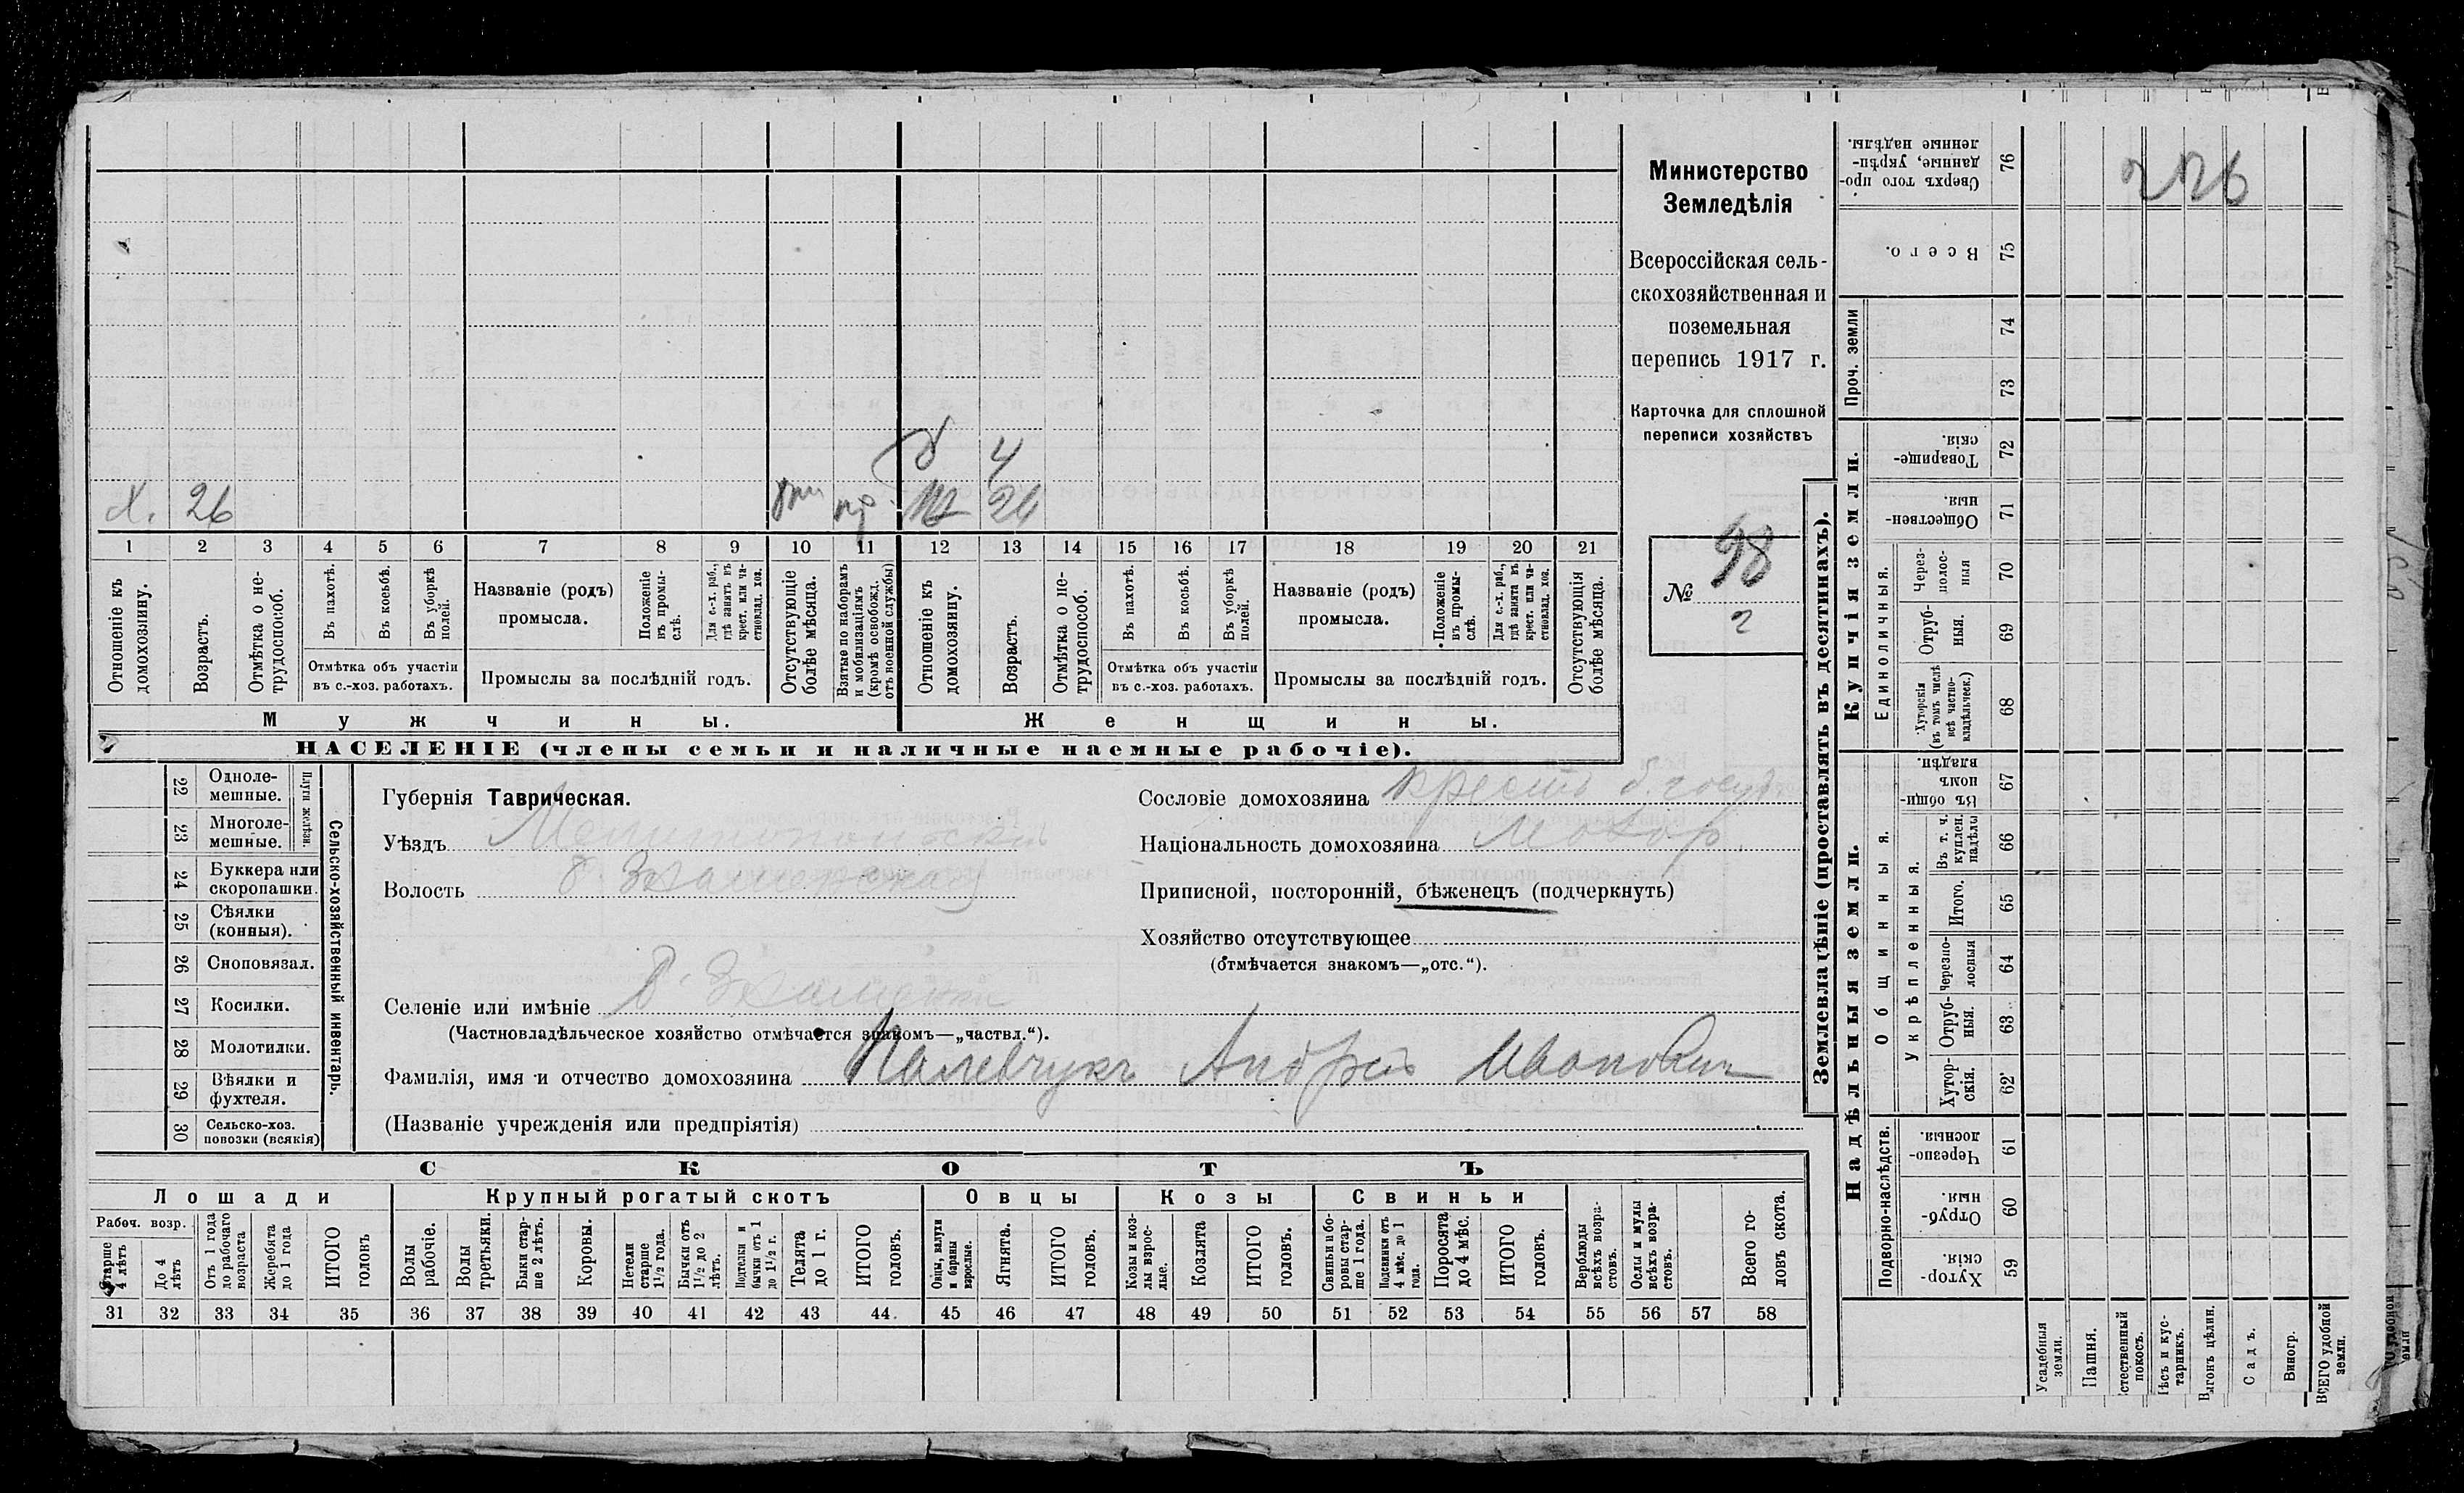 Министерство
Земледѣлія
Всероссійская сель-
скохозяйственная и
поземельная
перепись 1917 г.
Карточка для сплошной
переписи хозяйствъ
№ 98
2
226
д 4
х. 26 пр. 24
1 2 3 4 5 6 7 8 9 10 11 12 13 14 15 16 17 18 19 20 21
Отношеніе къ домохозяину.
Возрастъ.
Отмѣтка о не-трудоспособ.
Въ пахотѣ.
Въ косьбѣ.
Въ уборкѣ полей.
Отмѣтка объ участіи
въ с.-хоз. работахъ.
Названіе (родъ)
промысла.
Положеніе въ промы-слѣ.
Для с.-х. раб., гдѣ занятъ въ крест. или ча-стновлад. хоз.
Промыслы за послѣдній годъ.
Отсутствующіе болѣе мѣсяца.
Взятые по наборамъ и мобилизаціямъ (кромѣ освобожд. отъ военной службы)
Отношеніе къ домохозяину.
Возрастъ.
Отмѣтка о не-трудоспособ.
Въ пахотѣ.
Въ косьбѣ.
Въ уборкѣ полей.
Отмѣтка объ участіи
въ с.-хоз. работахъ.
Названіе (родъ)
промысла.
Положеніе въ промы-слѣ.
Для с.-х. раб., гдѣ занята въ крест. или ча-стновлад. хоз.
Промыслы за послѣдній годъ.
Отсутствующія болѣе мѣсяца.
Мужчины.
Женщины.
НАСЕЛЕНІЕ (члены семьи и наличные наемные рабочіе).
Сельско-хозяйственный инвентарь.
Плуги желѣзн.
22 Одноле-мешные.
23 Многоле-мешные.
24 Буккера или скоропашки.
25 Сѣялки (конныя).
26 Сноповязал.
27 Косилки.
28 Молотилки.
29 Вѣялки и фухтеля.
30 Сельско-хоз. повозки (всякія)
Губернія Таврическая.
Уѣздъ Мелитопольскій
Волость Б. Знаменская
Селеніе или имѣніе Б. Знаменка
(Частновладѣльческое хозяйство отмѣчается знакомъ—„частвл.“).
Фамилія, имя и отчество домохозяина Палевчукъ Андрей Ивановичъ
(Названіе учрежденія или предпріятія)
Сословіе домохозяина крест. б. госуд
Національность домохозяина Малор.
Приписной, посторонній, бѣженецъ (подчеркнуть)
Хозяйство отсутствующее
(отмѣчается знакомъ—„отс.“).
СКОТЪ
Лошади
Крупный рогатый скотъ
Овцы
Козы
Свиньи
Рабоч. возр.
Старше 4 лѣтъ
До 4 лѣтъ
Отъ 1 года до рабочаго возраста
Жеребята до 1 года
ИТОГО головъ
Волы рабочіе.
Волы третьяки.
Быки стар-ше 2 лѣтъ.
Коровы.
Нетели старше 1½ года.
Бычки отъ 1½ до 2 лѣтъ.
Подтелки и бычки отъ 1 до 1½ г.
Телята до 1 г.
ИТОГО головъ.
Овцы, валухи и бараны взрослые.
Ягнята.
ИТОГО головъ.
Козы и коз-лы взрос-лые.
Козлята
ИТОГО головъ.
Свиньи и бо-ровы стар-ше 1 года.
Подсвинки отъ 4 мѣс. до 1 года.
Поросята до 4 мѣс.
ИТОГО головъ.
Верблюды всѣхъ возра-стовъ.
Ослы и мулы всѣхъ возра-стовъ.
Всего го-ловъ скота.
31 32 33 34 35 36 37 38 39 40 41 42 43 44. 45 46 47 48 49 50 51 52 53 54 55 56 57 58
Землевладѣніе (проставлять въ десятинахъ).
Надѣльныя земли.
Купчія земли.
Проч. земли
Подворно-наслѣдств.
Общинныя.
Укрѣпленныя.
Единоличныя.
76 Сверхъ того про-данные, укрѣп-ленные надѣлы.
75 Всего.
74
73
72 Товарище-скія.
71 Обществен-ныя.
70 Через-полос-ныя
69 Отруб-ныя.
68 Хуторскія (въ томъ числѣ всѣ частно-владѣльческ.)
67 Въ общи-номъ владѣн.
66 Въ т. ч. куплен. надѣлы
65 Итого.
64 Черезпо-лосныя
63 Отруб-ныя.
62 Хутор-скія.
61 Черезпо-лосныя.
60 Отруб-ныя.
59 Хутор-скія
Усадебныя земли.
Пашня.
Естественный покосъ.
Лѣсъ и кус-тарникъ.
Выгонъ цѣлин.
Садъ.
Виногр.
ВСЕГО удобной земли.